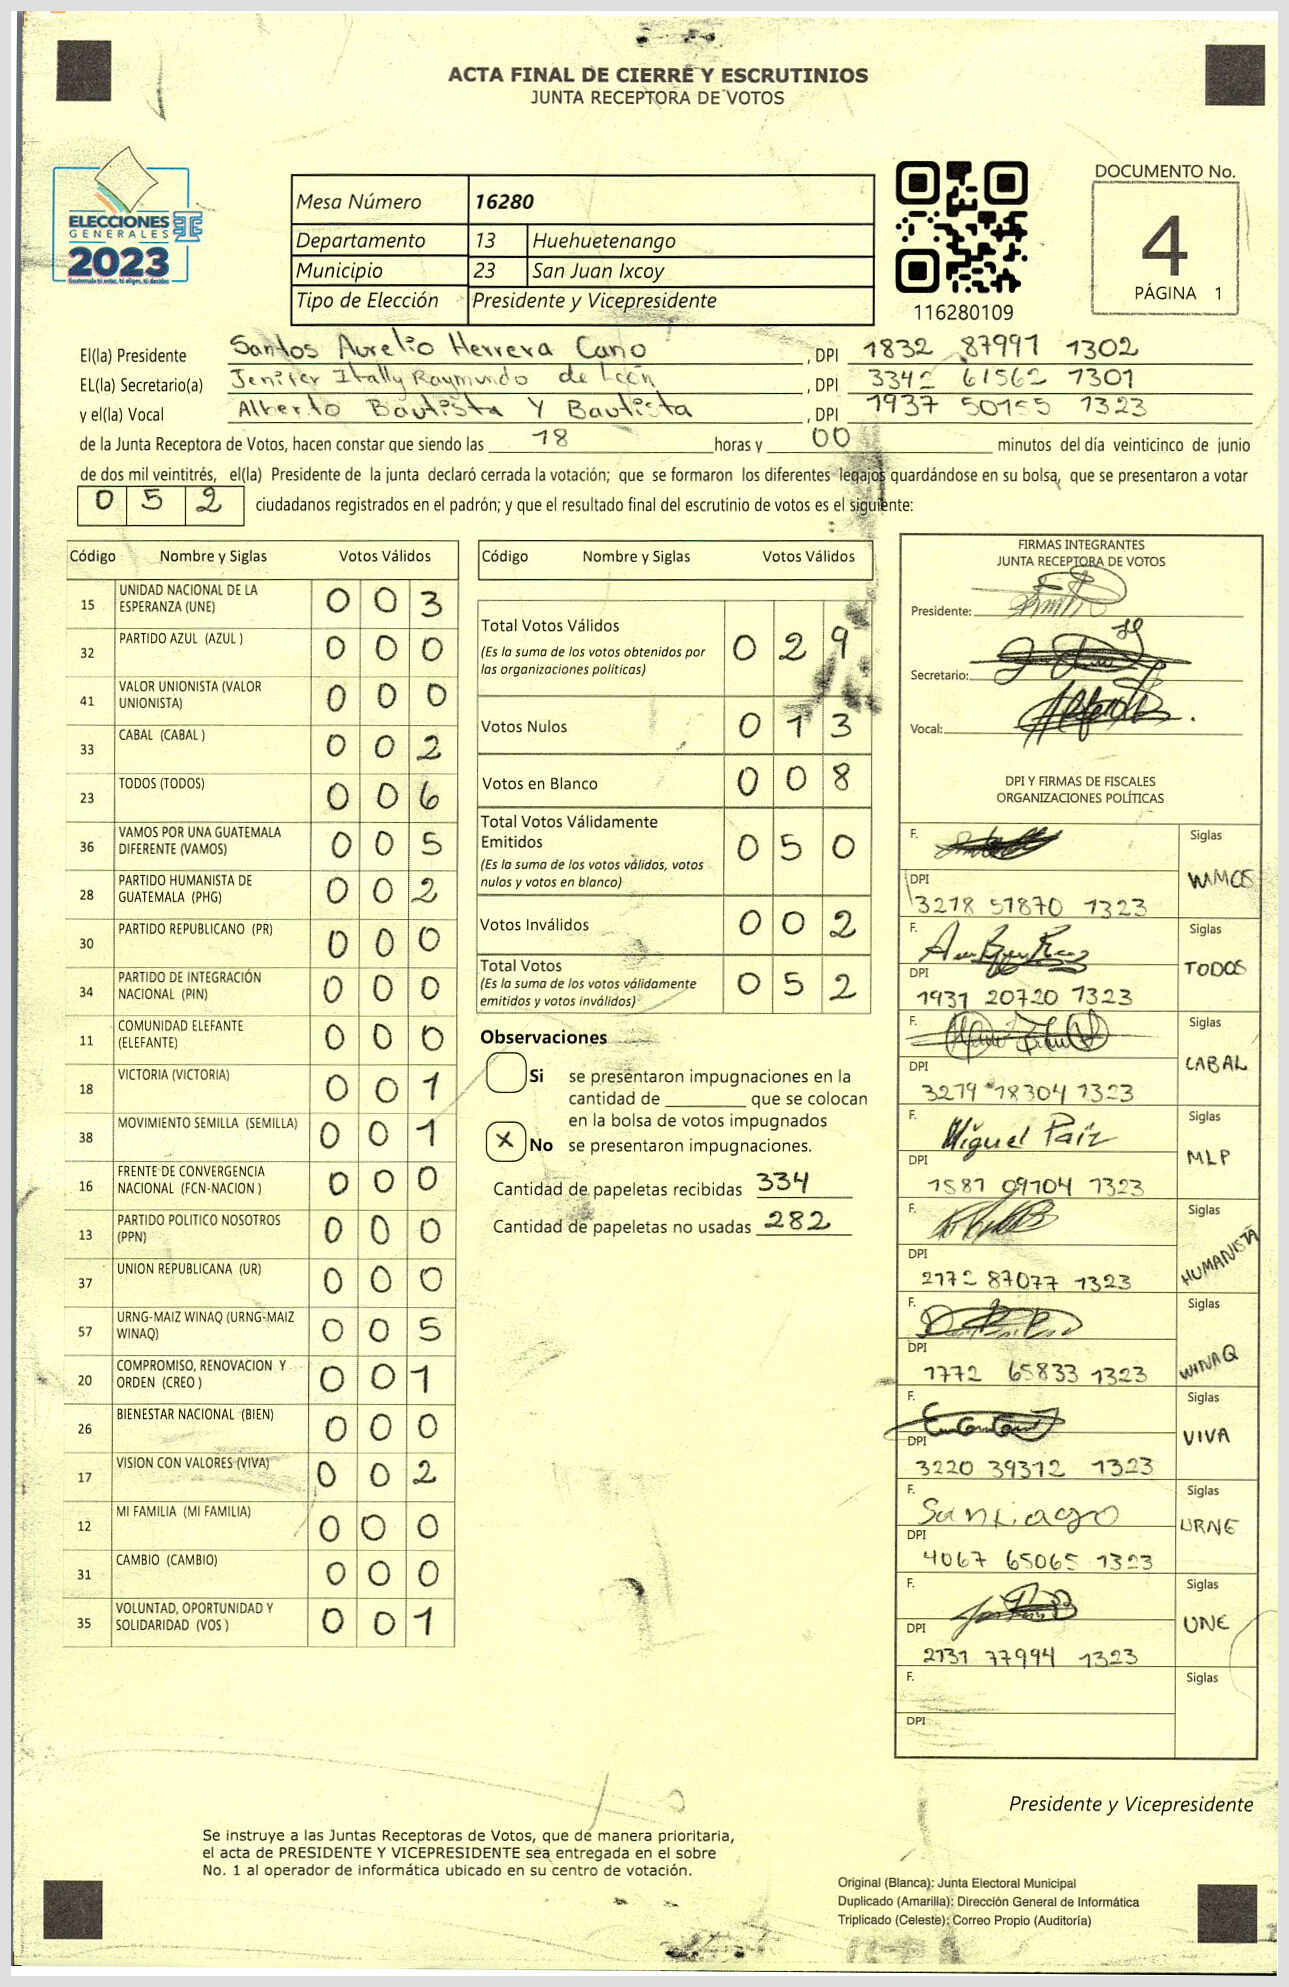 ACTA FINAL DE CIERRE Y ESCRUTINIOS
JUNTA RECEPTORA DE VOTOS
ELECCIONES
GENERALES
2023
Mesa Número 16280
Departamento 13 Huehuetenango
Municipio 23 San Juan Ixcoy
Tipo de Elección Presidente y Vicepresidente
116280109
DOCUMENTO No.
4
PÁGINA 1
El(la) Presidente Santos Aurelio Herrera Cano, DPI 1832 87991 1302
EL(la) Secretario(a) Jenifer Itally Raymundo de León, DPI 3342 61562 1301
y el(la) Vocal Alberto Bautista Y Bautista, DPI 1937 50155 1323
de la Junta Receptora de Votos, hacen constar que siendo las 18 horas y 00 minutos del día veinticinco de junio
de dos mil veintitrés, el(la) Presidente de la junta declaró cerrada la votación; que se formaron los diferentes legajos quardándose en su bolsa, que se presentaron a votar
0 5 2 ciudadanos registrados en el padrón; y que el resultado final del escrutinio de votos es el siguiente:
Código Nombre y Siglas Votos Válidos
15 UNIDAD NACIONAL DE LA ESPERANZA (UNE) 0 0 3
32 PARTIDO AZUL (AZUL ) 0 0 0
41 VALOR UNIONISTA (VALOR UNIONISTA) 0 0 0
33 CABAL (CABAL ) 0 0 2
23 TODOS (TODOS) 0 0 6
36 VAMOS POR UNA GUATEMALA DIFERENTE (VAMOS) 0 0 5
28 PARTIDO HUMANISTA DE GUATEMALA (PHG) 0 0 2
30 PARTIDO REPUBLICANO (PR) 0 0 0
34 PARTIDO DE INTEGRACIÓN NACIONAL (PIN) 0 0 0
11 COMUNIDAD ELEFANTE (ELEFANTE) 0 0 0
18 VICTORIA (VICTORIA) 0 0 1
38 MOVIMIENTO SEMILLA (SEMILLA) 0 0 1
16 FRENTE DE CONVERGENCIA NACIONAL (FCN-NACION ) 0 0 0
13 PARTIDO POLITICO NOSOTROS (PPN) 0 0 0
37 UNION REPUBLICANA (UR) 0 0 0
57 URNG-MAIZ WINAQ (URNG-MAIZ WINAQ) 0 0 5
20 COMPROMISO, RENOVACION Y ORDEN (CREO ) 0 0 1
26 BIENESTAR NACIONAL (BIEN) 0 0 0
17 VISION CON VALORES (VIVA) 0 0 2
12 MI FAMILIA (MI FAMILIA) 0 0 0
31 CAMBIO (CAMBIO) 0 0 0
35 VOLUNTAD, OPORTUNIDAD Y SOLIDARIDAD (VOS ) 0 0 1
Código Nombre y Siglas Votos Válidos
Total Votos Válidos 0 2 9
(Es la suma de los votos obtenidos por
las organizaciones políticas)
Votos Nulos 0 1 3
Votos en Blanco 0 0 8
Total Votos Válidamente
Emitidos 0 5 0
(Es la suma de los votos válidos, votos
nulos y votos en blanco)
Votos Inválidos 0 0 2
Total Votos 0 5 2
(Es la suma de los votos válidamente
emitidos y votos inválidos)
Observaciones
Si se presentaron impugnaciones en la
cantidad de ________ que se colocan
en la bolsa de votos impugnados
X No se presentaron impugnaciones.
Cantidad de papeletas recibidas 334
Cantidad de papeletas no usadas 282
FIRMAS INTEGRANTES
JUNTA RECEPTORA DE VOTOS
Presidente:
Secretario:
Vocal:
DPI Y FIRMAS DE FISCALES
ORGANIZACIONES POLÍTICAS
F. Siglas
DPI VAMOS
3218 51870 1323
F. Siglas
DPI TODOS
1931 20720 1323
F. Siglas
DPI CABAL
3279 18304 1323
F. Miguel Paiz Siglas
DPI MLP
1581 09704 1323
F. Siglas
DPI HUMANISTA
2172 87077 1323
F. Siglas
DPI WINAQ
1772 65833 1323
F. Siglas
DPI VIVA
3220 39312 1323
F. Santiago Siglas
DPI URNE
4067 65065 1323
F. Siglas
DPI UNE
2131 77994 1323
F. Siglas
DPI
Presidente y Vicepresidente
Se instruye a las Juntas Receptoras de Votos, que de manera prioritaria,
el acta de PRESIDENTE Y VICEPRESIDENTE sea entregada en el sobre
No. 1 al operador de informática ubicado en su centro de votación.
Original (Blanca): Junta Electoral Municipal
Duplicado (Amarilla): Dirección General de Informática
Triplicado (Celeste): Correo Propio (Auditoría)